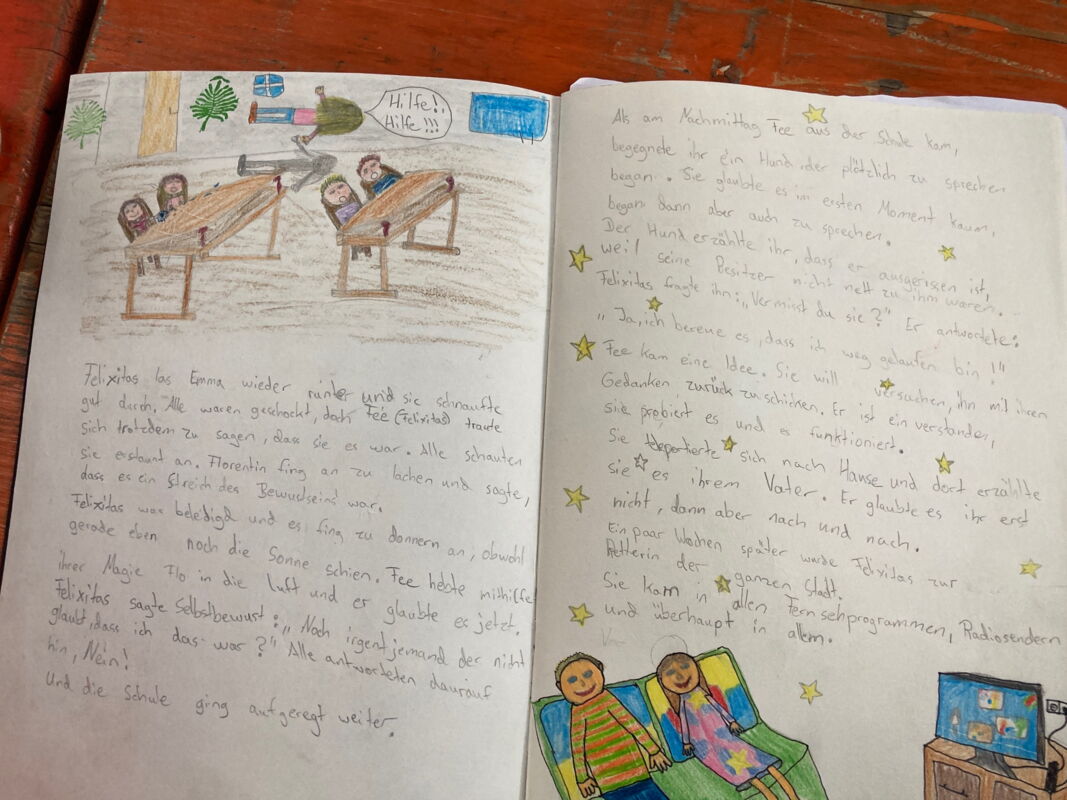 Hilfe!!
Hilfe!!!
Felixitas las Emma wieder runter und sie schnaufte
gut durch. Alle waren geschockt, doch Fee (Felixitas) traute
sich trotzdem zu sagen, dass sie es war. Alle schauten
sie erstaunt an. Florentin fing an zu lachen und sagte,
dass es ein Streich des Bewustseins war.
Felixitas war beleidigd und es fing zu donnern an, obwohl
gerade eben noch die Sonne schien. Fee hebte mithilfe
ihrer Magie Flo in die Luft und er glaubte es jetzt.
Felixitas sagte Selbstbewust: „Noch irgent jemand der nicht
glaubt, dass ich das war?" Alle antworteten daurauf
hin, Nein!
Und die Schule ging aufgeregt weiter.
Als am Nachmittag Fee aus der Schule kam,
begegnete ihr ein Hund, der plötzlich zu sprechen
began. Sie glaubte es im ersten Moment kaum,
began dann aber auch zu sprechen.
Der Hund erzählte ihr, dass er ausgerissen ist,
weil seine Besitzer nicht nett zu ihm waren.
Felixitas fragte ihn: „Vermisst du sie?" Er antwortete:
„Ja, ich bereue es, dass ich weg gelaufen bin!"
Fee kam eine Idee. Sie will versuchen, ihn mit ihren
Gedanken zurück zu schicken. Er ist ein verstanden,
sie probiert es und es funktioniert.
Sie teportierte sich nach Hause und dort erzählte
sie es ihrem Vater. Er glaubte es ihr erst
nicht, dann aber nach und nach.
Ein paar Wochen später wurde Felixitas zur
Retterin der ganzen Stadt.
Sie kam in allen Fernsehprogrammen, Radiosendern
und überhaupt in allem.